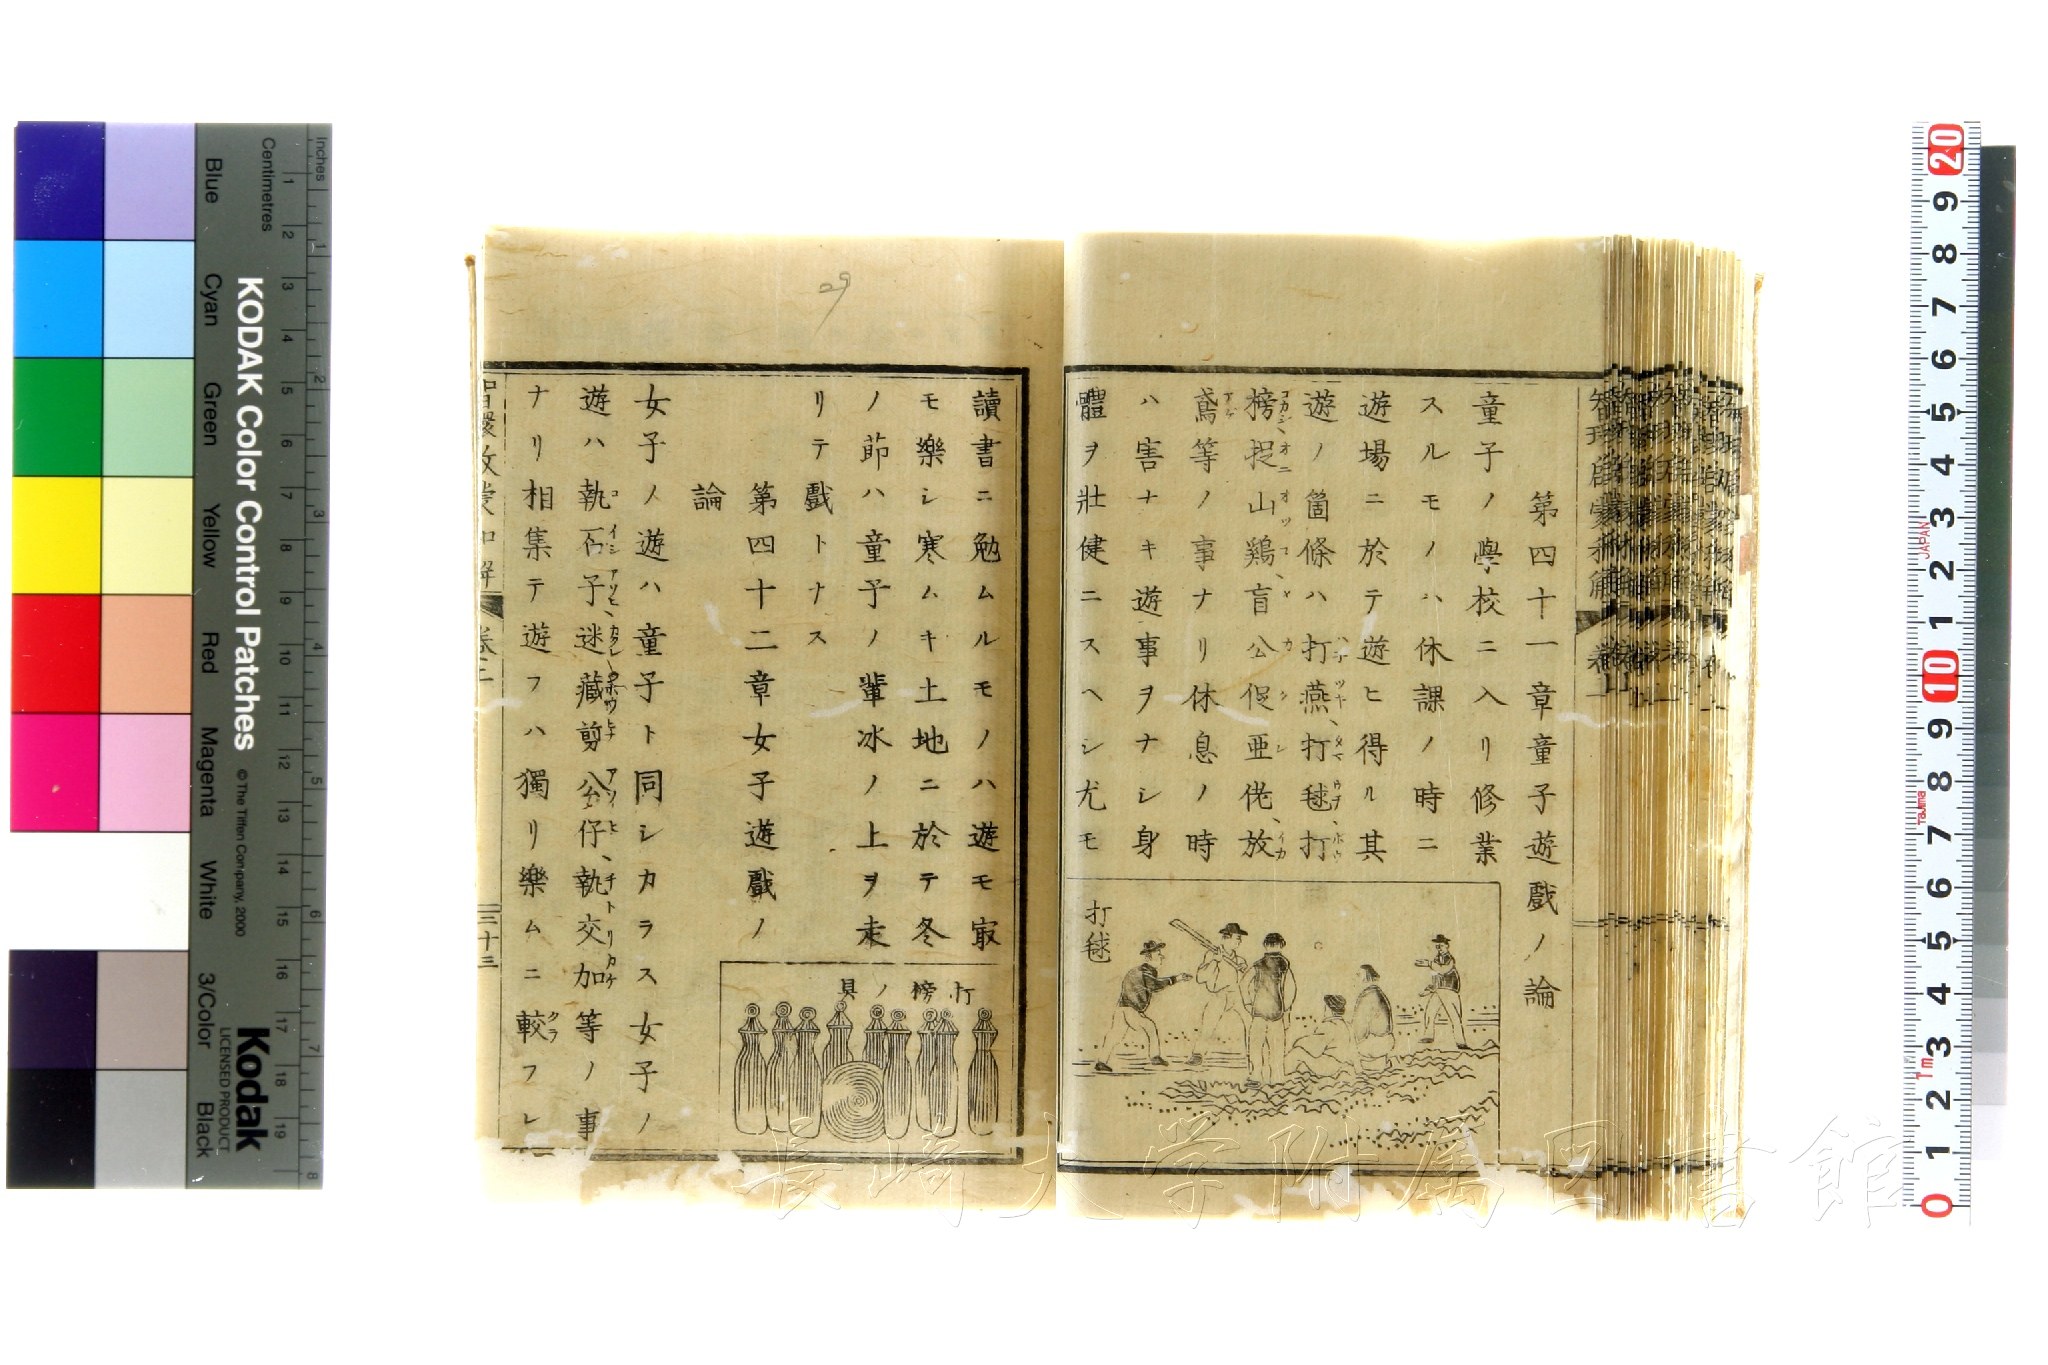 第四十一章童子遊戲ノ論
童子ノ學校ニ入リ修業
スルモノハ休課ノ時ニ
遊場ニ於テ遊ヒ得ル其
遊ノ箇條ハ打燕打毬打
榜捉山鷄盲公促亜佬放
鳶等ノ事ナリ休息ノ時
ハ害ナキ遊事ヲナシ身
體ヲ壯健ニスヘシ尤モ
打毬
讀書ニ勉ムルモノハ遊モ㝡
モ樂シ寒ムキ土地ニ於テ冬
ノ節ハ童子ノ輩冰ノ上ヲ走
リテ戲トナス
第四十二章女子遊戲ノ
論
打榜ノ具
女子ノ遊ハ童子ト同シカラス女子ノ
遊ハ執石子迷藏剪公仔執交加等ノ事
ナリ相集テ遊フハ獨リ樂ムニ較フレ
三十三
長崎大学附属図書館
KODAK Color Control Patches
© The Tiffen Company, 2000
Kodak
LICENSED PRODUCT
Inches
Centimetres
Blue
Cyan
Green
Yellow
Red
Magenta
White
3/Color
Black
JAPAN
Tajima